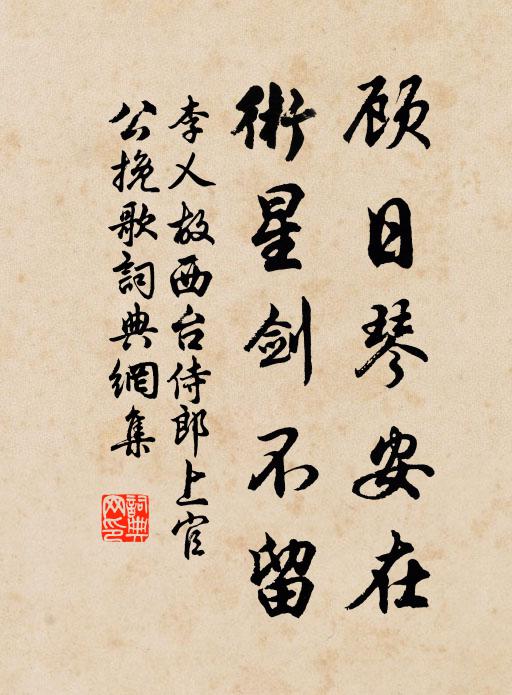 顾日琴安在
術星剑不留
李乂故西台侍郎上官
公挽歌詞典網集
詞典
网印